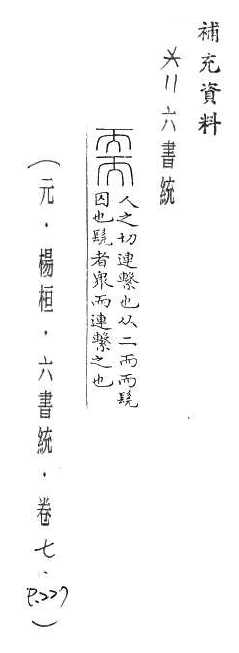 補充資料
六書統
人之切連繫也从二而而髡
因也髡者衆而連繫之也
(元.楊桓.六書統.卷七.P.227)